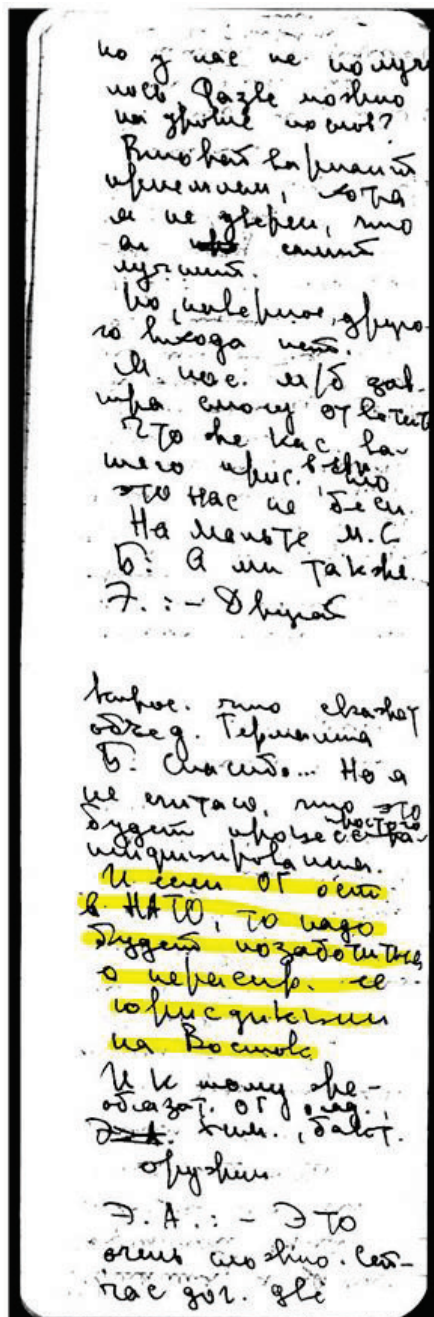 но у нас не получи
лось. Разве можно
на уровне послов?
Второй вариант
приемлем, хотя
я не уверен, что
он самый
лучший.
Но, наверное, друго-
го выхода нет.
М. пос. м/б зав-
тра смогу ответить
Что же кас. ва-
шего прис. в
это нас не бесп.
На Мальте М.С
Б: А мы также
Э.: - Другой
вопрос. что скажет
объед. Германия
Б. Спасибо... Но я
не считаю, что это
будет процесс простого
ратифицирования.
И если ОГ ост.
в НАТО, то надо
будет позаботиться
о нераспр. ее
юрисдикции
на Восток
И к тому же -
обязат. ОГ
хим., бакт.
оружии
Э.А.: - Это
очень сложно. Сей-
час дог. две